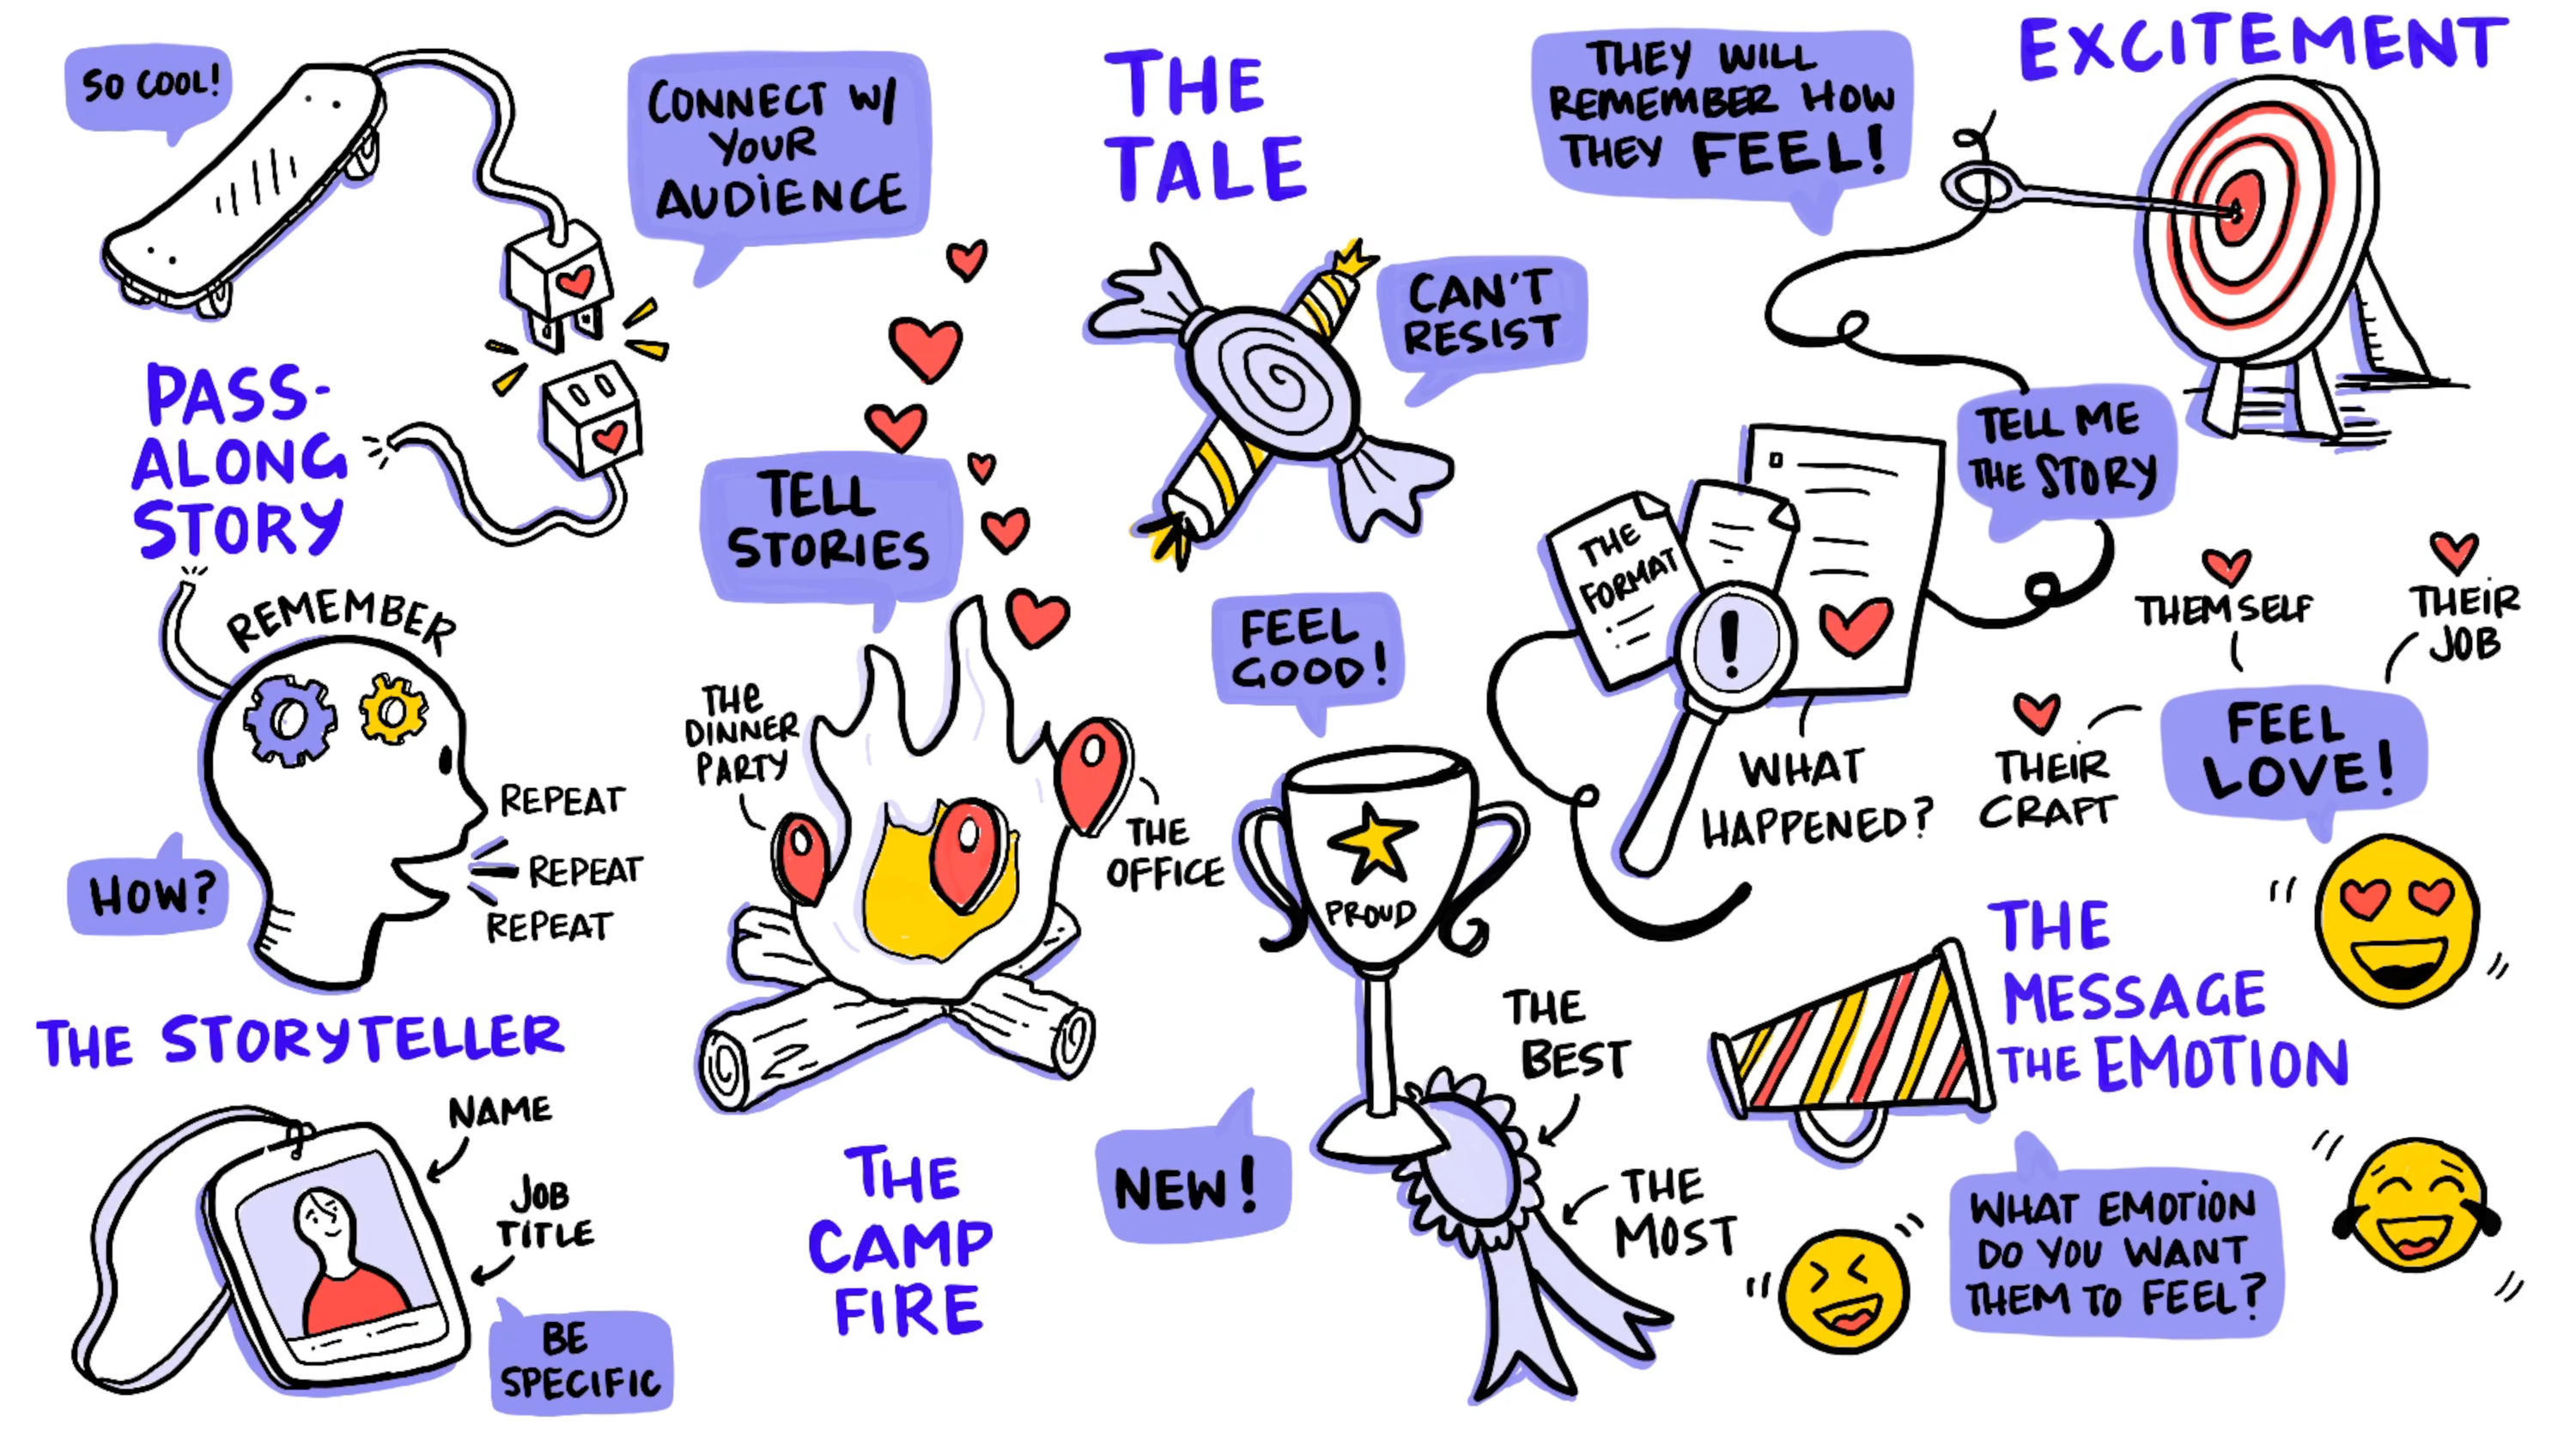 SO COOL!
CONNECT W/
YOUR
AUDIENCE
PASS-
ALONG
STORY
REMEMBER
REPEAT
REPEAT
REPEAT
HOW?
THE STORYTELLER
NAME
JOB
TITLE
BE
SPECIFIC
TELL
STORIES
THE
DINNER
PARTY
THE
OFFICE
THE
CAMP
FIRE
THE
TALE
CAN'T
RESIST
FEEL
GOOD!
PROUD
NEW!
THE
BEST
THE
MOST
THEY WILL
REMEMBER HOW
THEY FEEL!
EXCITEMENT
TELL ME
THE STORY
THE
FORMAT
!
WHAT
HAPPENED?
THEMSELF
THEIR
JOB
THEIR
CRAFT
FEEL
LOVE!
THE
MESSAGE
THE EMOTION
WHAT EMOTION
DO YOU WANT
THEM TO FEEL?